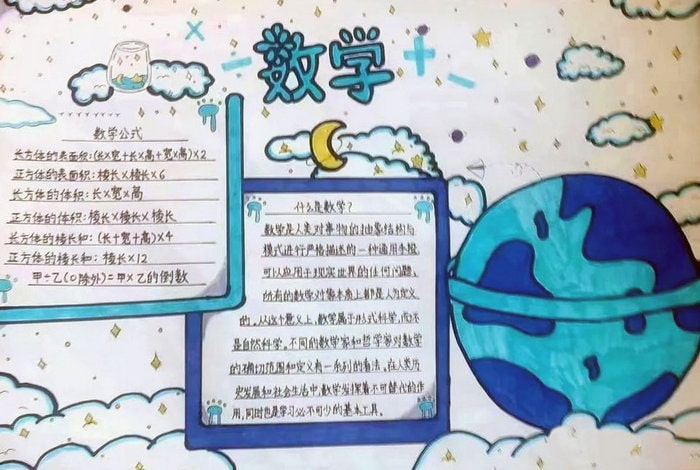 数学
数学公式
长方体的表面积:(长×宽+长×高+宽×高)×2
正方体的表面积:棱长×棱长×6
长方体的体积:长×宽×高
正方体的体积:棱长×棱长×棱长
长方体的棱长和:(长+宽+高)×4
正方体的棱长和:棱长×12
甲÷乙(0除外)=甲×乙的倒数
什么是数学?
数学是人类对事物的抽象结构与
模式进行严格描述的一种通用手段
可以应用于现实世界的任何问题,
所有的数学对象本质上都是人为定义
的。从这个意义上,数学属于形式科学,而不
是自然科学。不同的数学家和哲学家对数学
的确切范围和定义有一系列的看法。在人类历
史发展和社会生活中,数学发挥着不可替代的作
用,同时也是学习必不可少的基本工具。